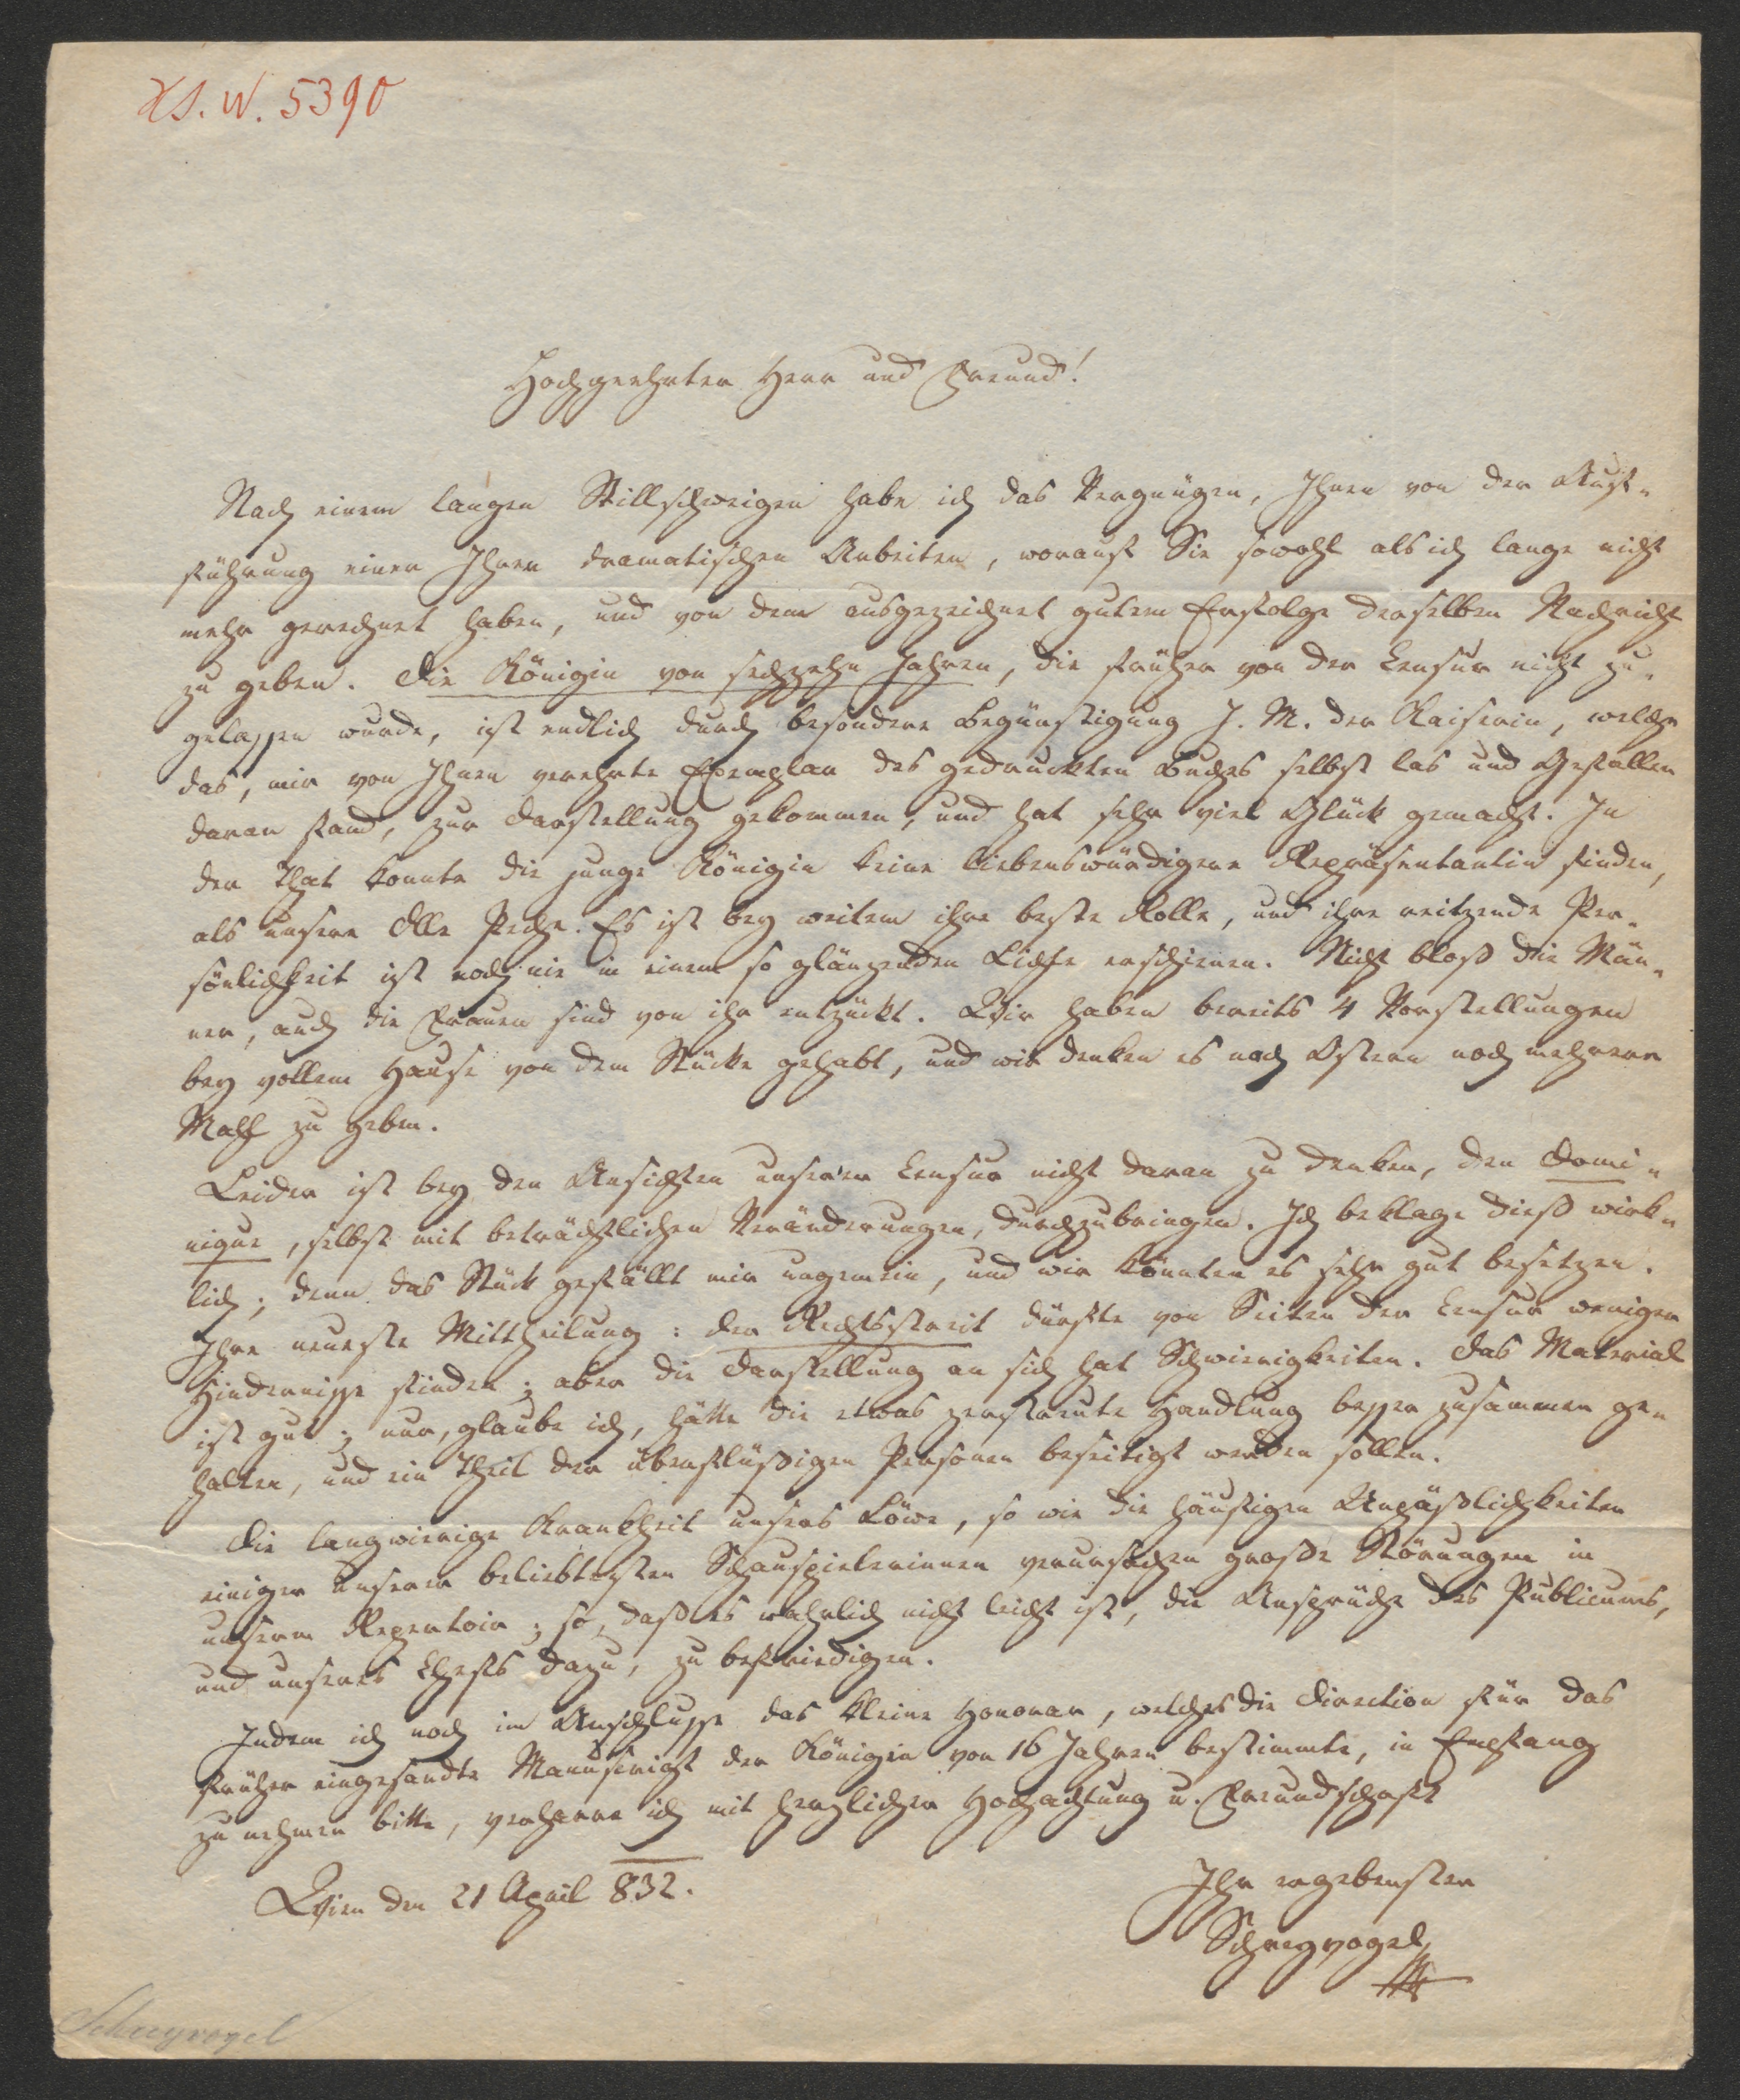 HS. N. 5390
Hochgeehrter Herr und Freund!
Nach einem langen Stillschweigen habe ich das Vergnügen, Ihnen von der Auf-
führung einer Ihrer dramatischen Arbeiten, worauf Sie sowohl als ich lange nicht
mehr gerechnet haben, und von dem ausgezeichnet gutem Erfolge derselben Nachricht
zu geben. Die Königin von sechzehn Jahren, die früher von der Censur nicht zu-
gelassen wurde, ist endlich durch besondere Begünstigung J. M. der Kaiserin, welche
das, mir von Ihnen verehrte Exemplar des gedruckten Buches selbst las und Gefallen
daran fand, zur Darstellung gekommen, und hat sehr viel Glück gemacht. In
der That konnte die junge Königin keine liebenswürdigere Repräsentantin finden,
als unsere Dlle Peche. Es ist bey weitem ihre beste Rolle, und ihre reitzende Per-
sönlichkeit ist noch nie in einem so glänzenden Lichte erschienen. Nicht bloß die Män-
ner, auch die Frauen sind von ihr entzückt. Wir haben bereits 4 Vorstellungen
bey vollem Hause von dem Stücke gehabt, und wir denken es nach Ostern noch mehrere
Mahl zu geben.
Leider ist bey den Ansichten unserer Censur nicht daran zu denken, den Domi-
nique, selbst mit beträchtlichen Veränderungen, durchzubringen. Ich beklage dieß wirk-
lich; denn das Stück gefällt mir ungemein, und wir könnten es sehr gut besetzen.
Ihre neueste Mittheilung: der Rechtsstreit dürfte von Seiten der Censur weniger
Hindernisse finden; aber die Darstellung an sich hat Schwierigkeiten. Das Material
ist gut; nur, glaube ich, hätte die etwas zerstreute Handlung besser zusammen ge-
halten, und ein Theil der überflüßigen Personen beseitigt werden sollen.
Die langwierige Krankheit unsers Löwe, so wie die häufigen Unpäßlichkeiten
einiger unserer beliebtesten Schauspielerinnen verursachen große Störungen in
unserm Repertoir; so, daß es wahrlich nicht leicht ist, die Ansprüche des Publicums,
und unseres Chefs dazu, zu befriedigen.
Indem ich noch im Anschlusse das kleine Honorar, welches die Direction für das
früher eingesandte Manuscript der Königin von 16 Jahren bestimmte, in Empfang
zu nehmen bitte, verharre ich mit herzlicher Hochachtung u. Freundschaft
Wien den 21 April 832.
Ihr ergebenster
Schreyvogel
Schreyvogel